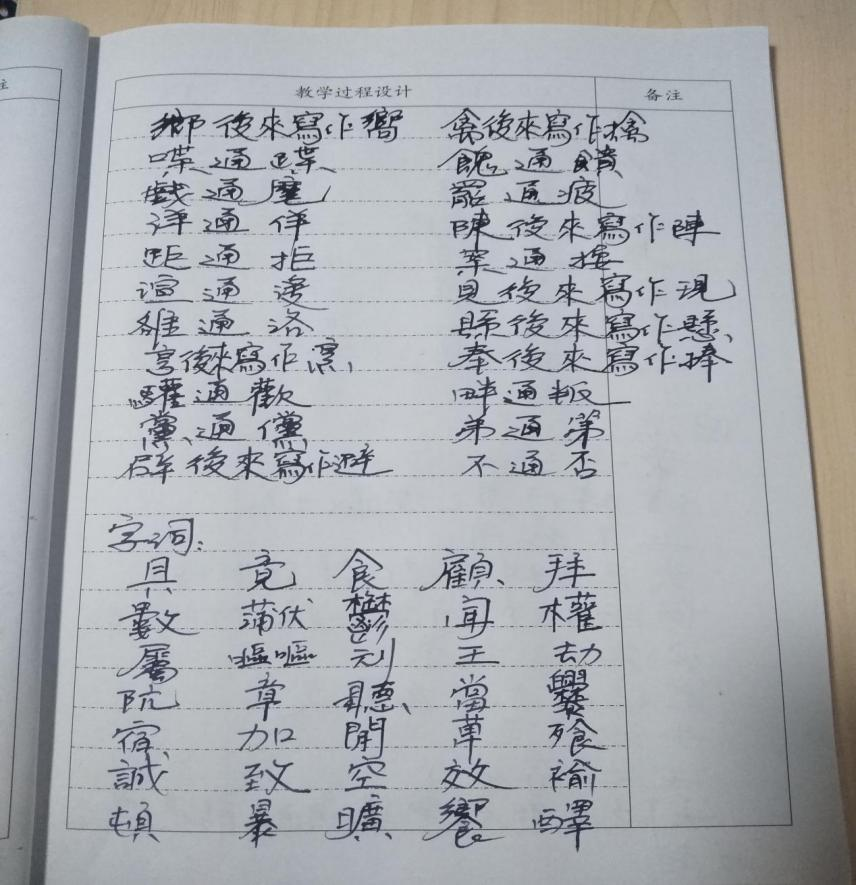 注
教学过程设计 备注
鄉後來寫作嚮 禽後來寫作擒
喋通蹀 餽通饋
戲通麾 罷通疲
详通佯 陳後來寫作陣
距通拒 案通按
諠通 見後來寫作現
雒通洛 縣後來寫作懸
亨後來寫作烹 奉後來寫作捧
驩通歡 畔通叛
黨通儻 弟通第
辟後來寫作避 不通否
字词:
具 竟 食 顧 拜
數 蒲伏 鬱 闻 權
屬 嘔嘔 刓 王 劫
阬 章 聽 當 釁
宿 加 開 草 飧
誠 致 空 效 褕
頓 暴 曠 饗 醳